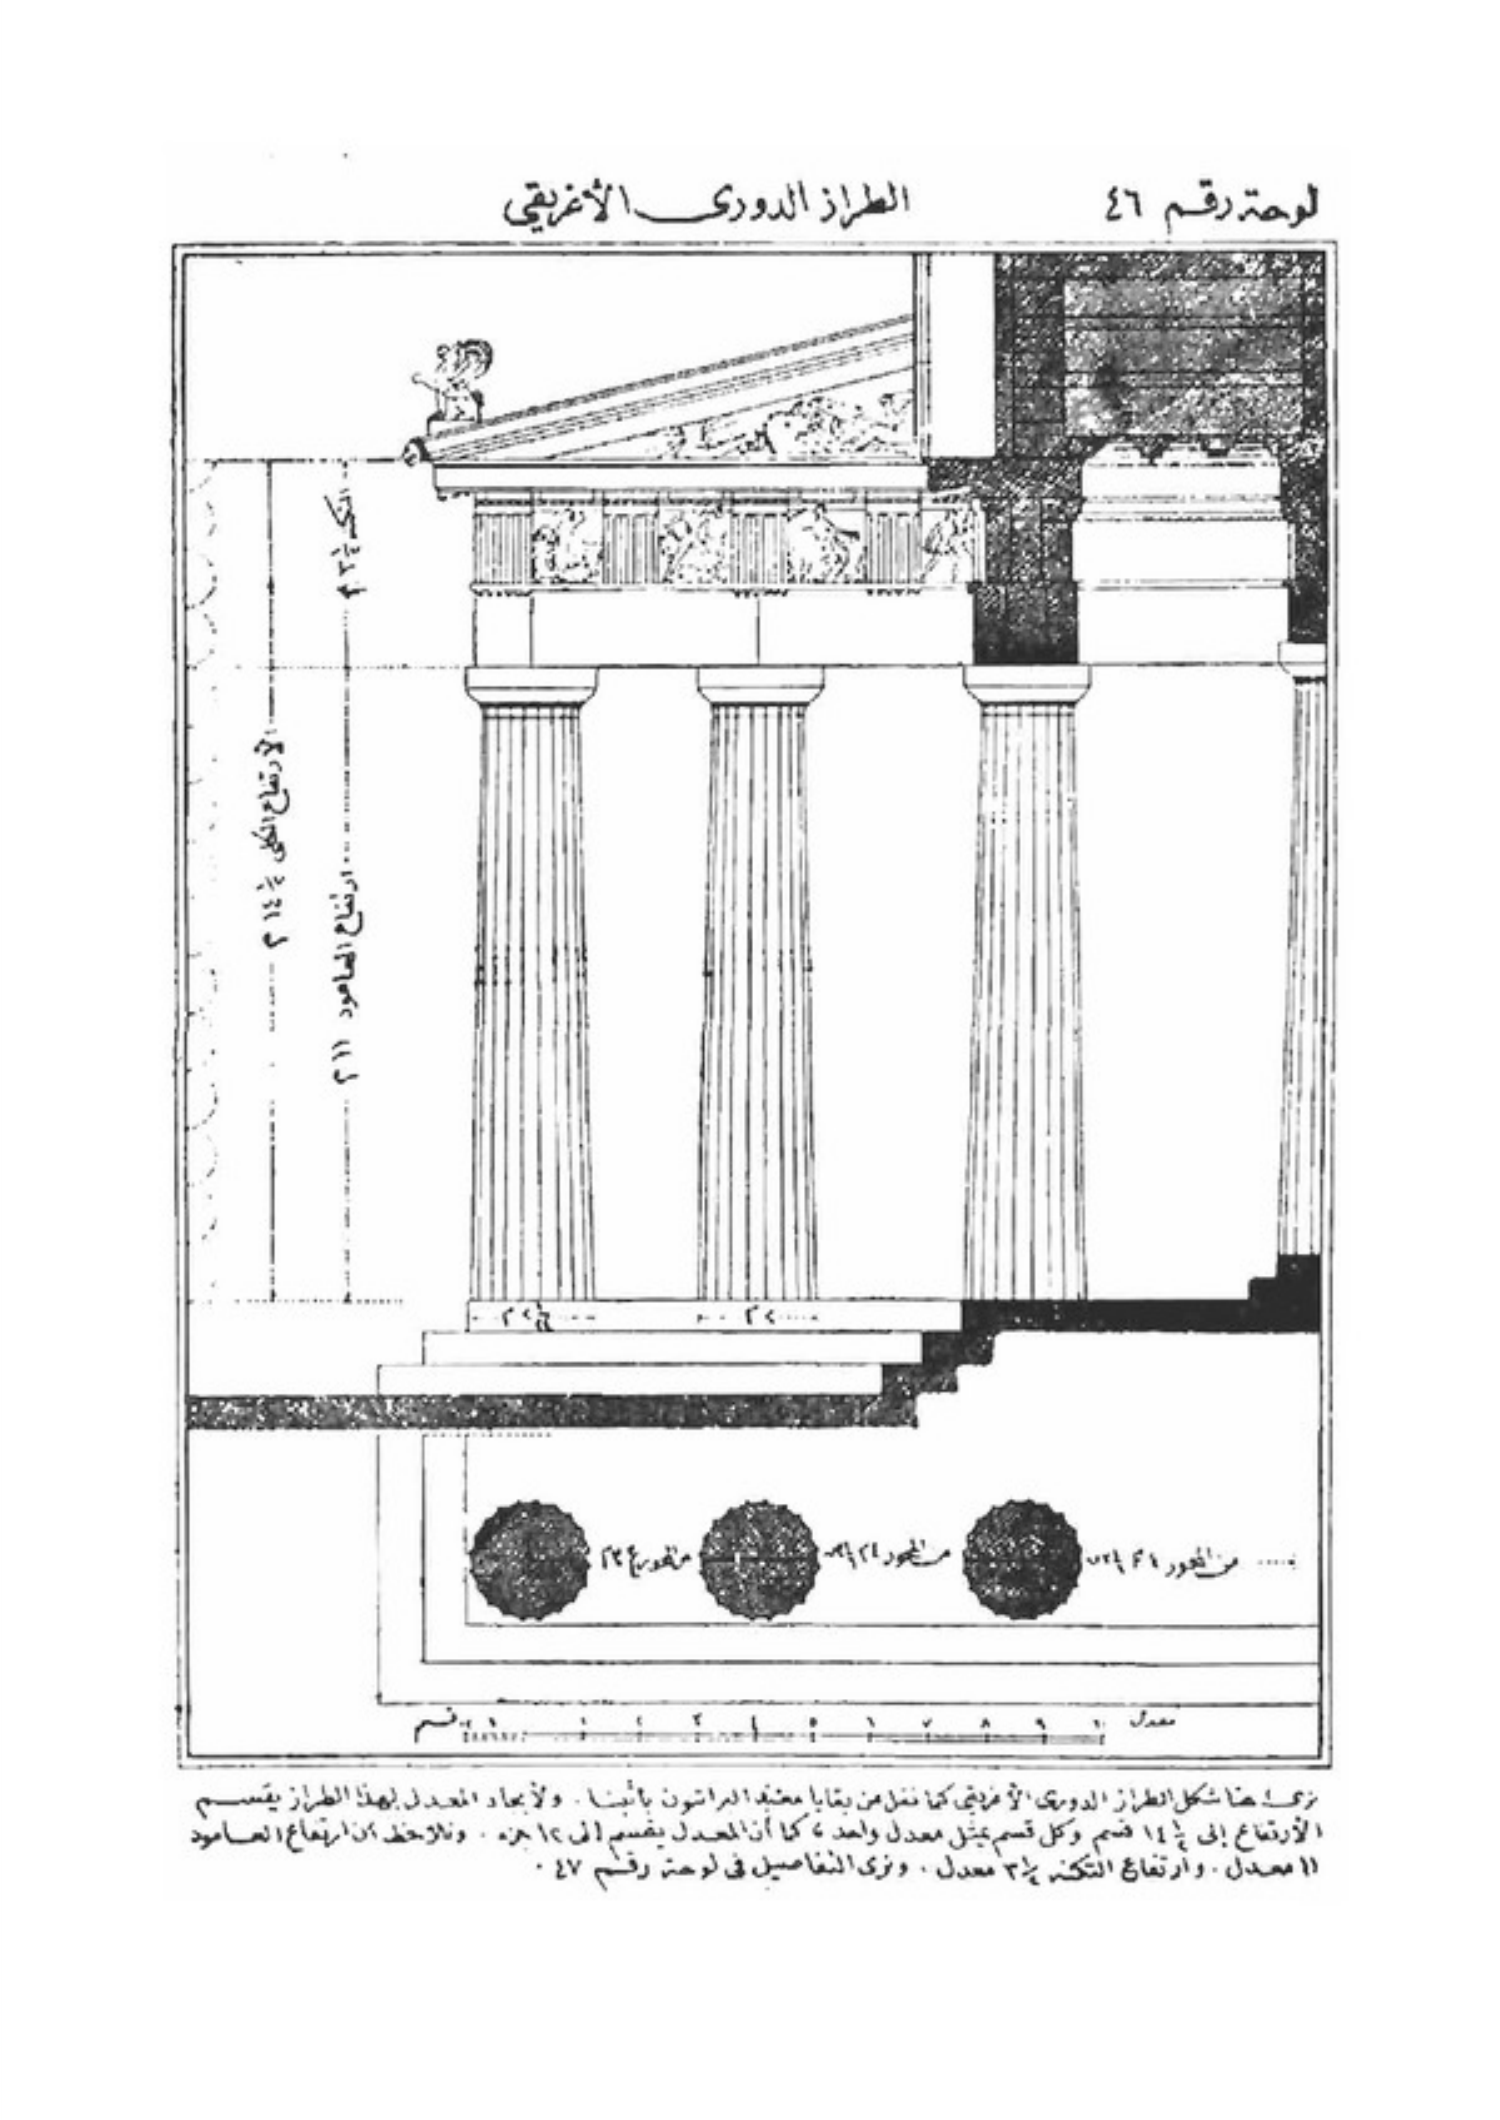 لوحة رقم ٤٦
الطراز الدورى الأغريقي
الارتفاع الكلى ١٤ ¼ م
ارتفاع العامود ١١ م
٢ م
قسم
١ ٢ ٣ ٤ ٥ ٦ ٧ ٨ ٩ ١٠
معدل
نرى هنا شكل الطراز الدورى الأغريقى كما نقل من بقايا معبد البراثنون بأثينا . ولأيجاد المعدل لهذا الطراز يقسم
الأرتفاع إلى ١٤ ¼ قسم وكل قسم يمثل معدل واحد ، كما أن المعدل يقسم إلى ١٢ جزء . ونلاحظ أن ارتفاع العامود
١١ معدل . وارتفاع التكنه ٣ ¼ معدل . ونرى التفاصيل فى لوحة رقم ٤٧ .